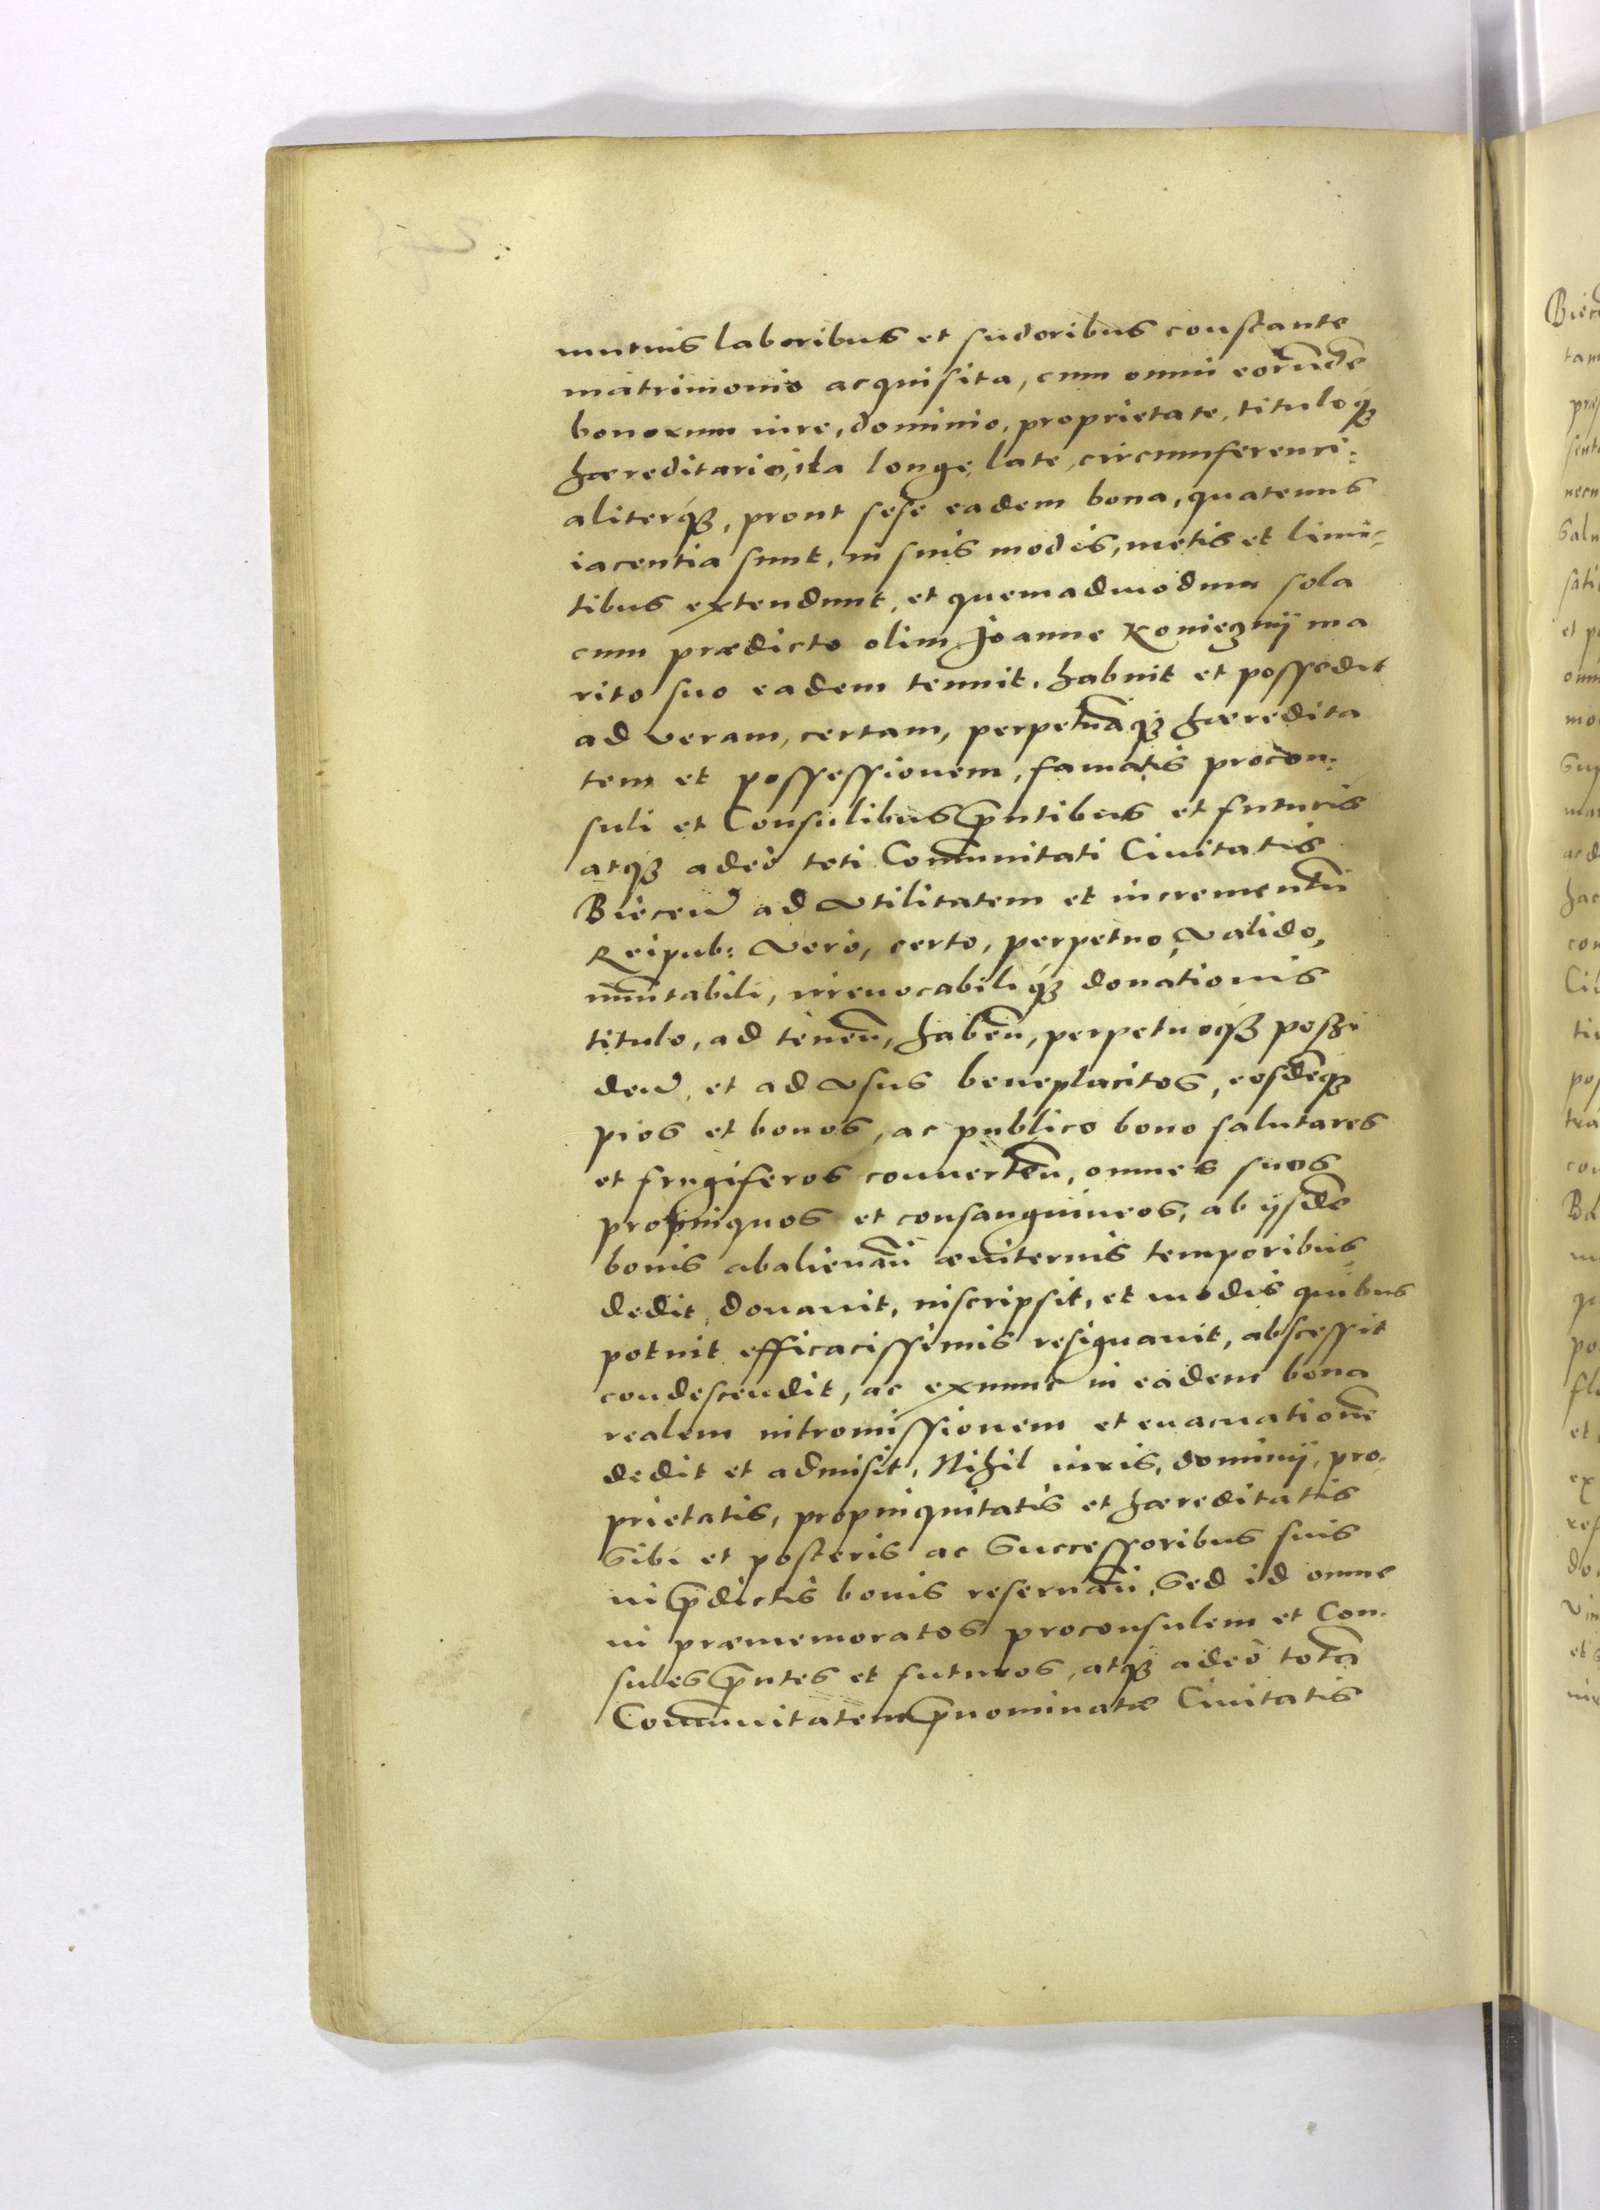 mutuis laboribus et sudoribus constante
matrimonio acquisita, cum omni eorūdē
bonorum iure, dominio, proprietate, tituloq́ꝫ
hæreditario, ita longe, late, circumferenci:
aliterq́ꝫ, prout sese eadem bona, quatenus
iacentia sunt, in suis modis, metis et limi:
tibus extendunt, et quemadmodum sola
cum prædicto olim Joanne Koniegnÿ ma
rito suo eadem tenuit, habuit et possedit
ad veram, certam, perpetuāqꝫ hæredita
tem et possessionem, famatis procon:
suli et Consulibus p̄ntibus et futuris
atqꝫ adeò toti Com̄unitati Ciuitatis
Biecen̄ ad vtilitatem et incrementū
Reipub: vero, certo, perpetuo, valido,
im̄utabili, irreuocabiliq́ꝫ donationis
titulo, ad tenen̄, haben̄, perpetuoqꝫ poszi
den̄, et ad vsus beneplacitos, eosdēqꝫ
pios et bonos, ac publico bono salutares
et frugiferos conuerten̄, omnes suos
propinquos et consanguineos, ab ijsdē
bonis abalienan̄ æuiternis temporibus,
dedit, donauit, inscripsit, et modis quibus
potuit efficacissimis resignauit, abscessit
condescendit, ac exnunc in eadem bona
realem intromissionem et euacuationē
dedit et admisit, Nihil iuris, dominij, pro:
prietatis, propinquitatis et hæreditatis
sibi et posteris ac successoribus suis
in p̄dictis bonis reseruan̄, sed id omne
in præmemoratos proconsulem et Con:
sules p̄ntes et futuros, atqꝫ adeò totā
Com̄unitatem p̄nominatæ Ciuitatis